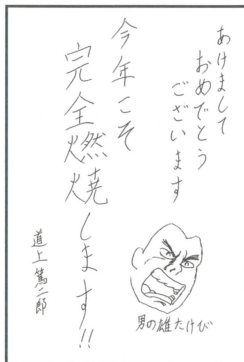 あけまして
おめでとう
ございます
今年こそ
完全燃焼します!!
道上篤二郎
男の雄たけび